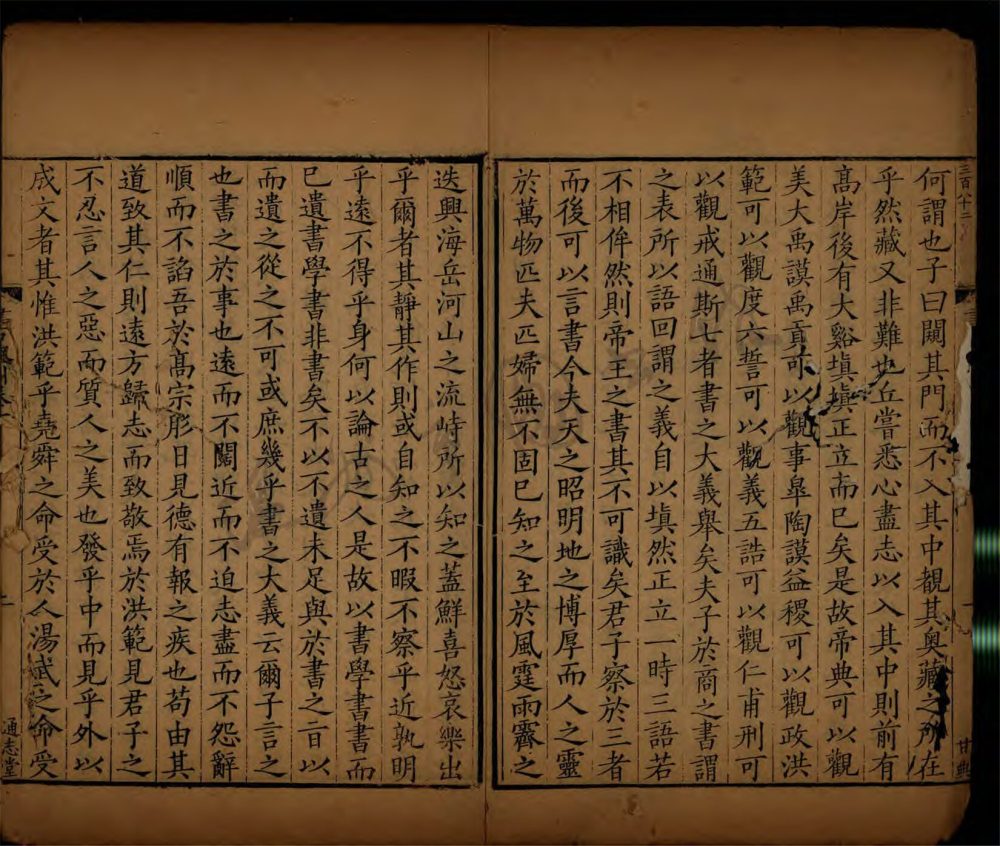 三百八十二
甘典
何謂也子曰闚其門而不入其中覩其奥藏之所在
乎然藏又非難也丘嘗悉心盡志以入其中則前有
髙岸後有大谿塡塡正立而已矣是故帝典可以觀
美大禹謨禹貢可以觀事臯陶謨益稷可以觀政洪
範可以觀度六誓可以觀義五誥可以觀仁甫刑可
以觀戒通斯七者書之大義舉矣夫子於商之書謂
之表所以語回謂之義自以塡然正立一時三語若
不相侔然則帝王之書其不可識矣君子察於三者
而後可以言書今夫天之昭明地之博厚而人之靈
於萬物匹夫匹婦無不固已知之至於風霆雨霽之
迭興海岳河山之流峙所以知之蓋鮮喜怒哀樂出
乎爾者其靜其作則或自知之不暇不察乎近孰明
乎遠不得乎身何以論古之人是故以書學書書而
已遺書學書非書矣不以不遺未足與於書之言以
而遺之從之不可或庶幾乎書之大義云爾子言之
也書之於事也遠而不闊近而不迫志盡而不怨辭
順而不謟吾於髙宗肜日見德有報之疾也苟由其
道致其仁則遠方歸志而致敬焉於洪範見君子之
不忍言人之惡而質人之美也發乎中而見乎外以
成文者其惟洪範乎堯舜之命受於人湯武之命受
通志堂